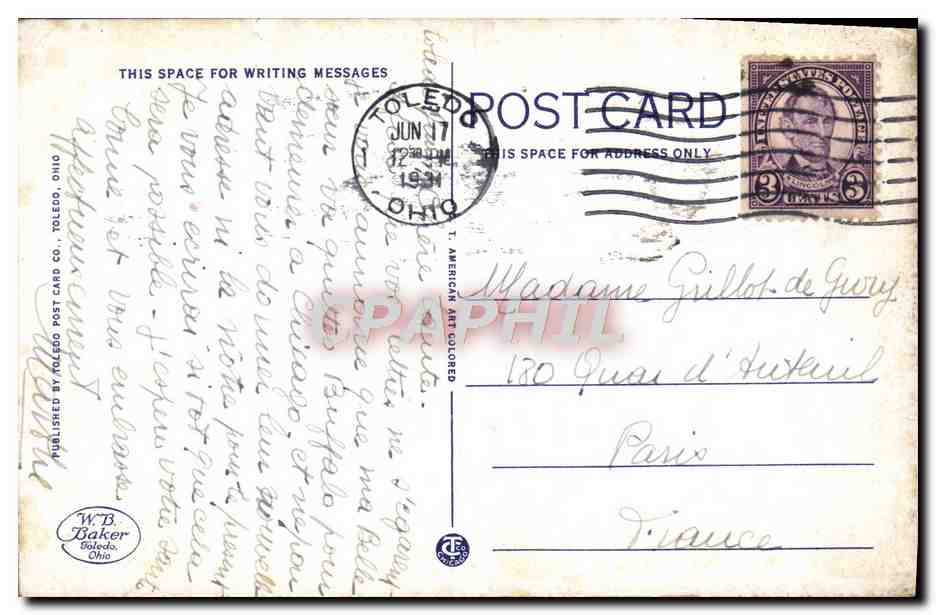 THIS SPACE FOR WRITING MESSAGES
POST CARD
THIS SPACE FOR ADDRESS ONLY
TOLEDO
JUN 17
12 30 PM
1931
OHIO
1
UNITED STATES POSTAGE
LINCOLN
3 3
CENTS
Toledo
chère tante -
que vos lettres ne s'égarent
je annonce que ma belle
soeur va quitter Buffalo pour
demeurer a Chicago et ne pou
vant vous donner leur nouvelle
adresse ni la nôtre pour le
Je vous écrirai sitôt que cela
sera possible - J'espère votre santé
bonne et vous embrasse
affectueusement
Madame Grillot de Givry
180 Quai d'Auteuil
Paris
France
PUBLISHED BY TOLEDO POST CARD CO., TOLEDO, OHIO
T. AMERICAN ART COLORED
W. B.
Baker
Toledo,
Ohio
CHICAGO
CPAPHIL